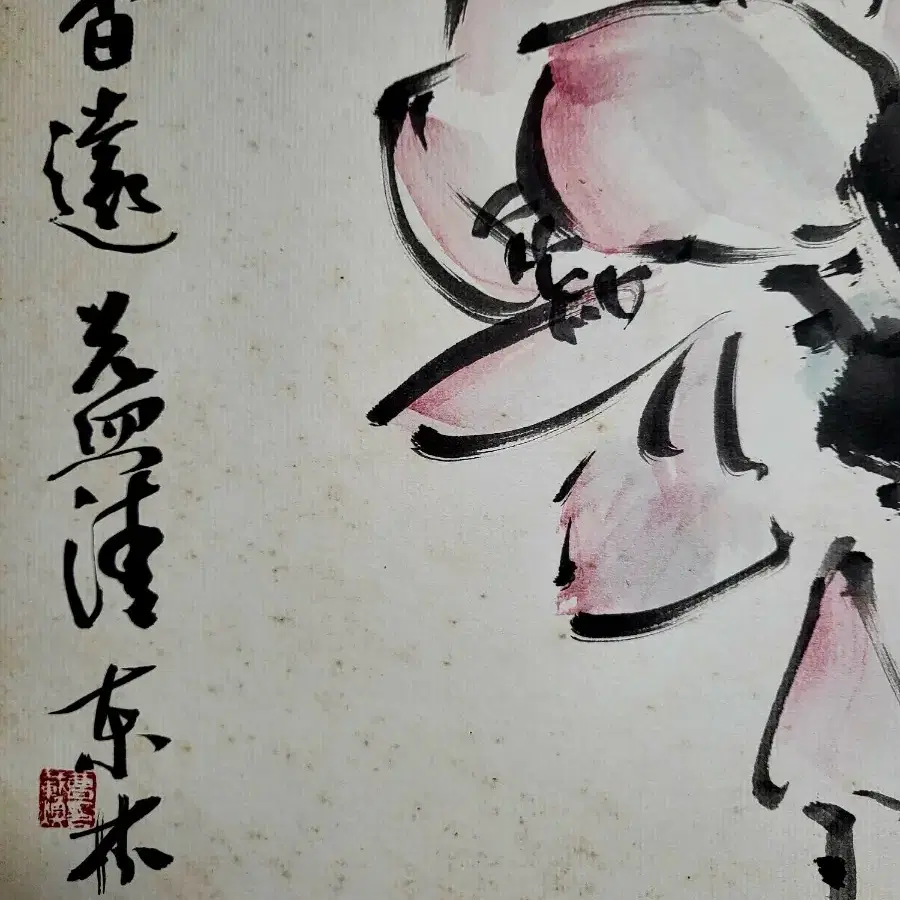 香遠益清 東林